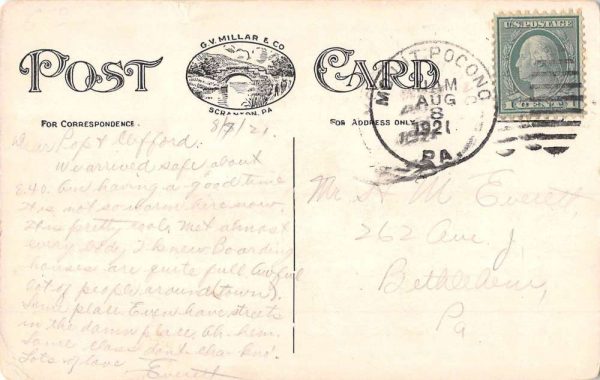 POST CARD
G.V. MILLAR & CO
SCRANTON, PA
FOR CORRESPONDENCE.
FOR ADDRESS ONLY
U.S. POSTAGE
1 CENT 1
MOUNT POCONO
AM
AUG
8
1921
PA.
8/7/21.
Dear Pop & Clifford:
We arrived safe about
8.40. but having a good time
It is not so warm here now.
It is pretty cool. Met almost
every body I knew. Boarding
houses are quite full. Awful
lot of people around (town).
Some place. Even have streets
in the damn place, Oh-hem.
Some class don't cha kno'.
Lots of love, Everett
Mr. H. M. Everett,
262 Ave. J,
Bethlehem,
Pa